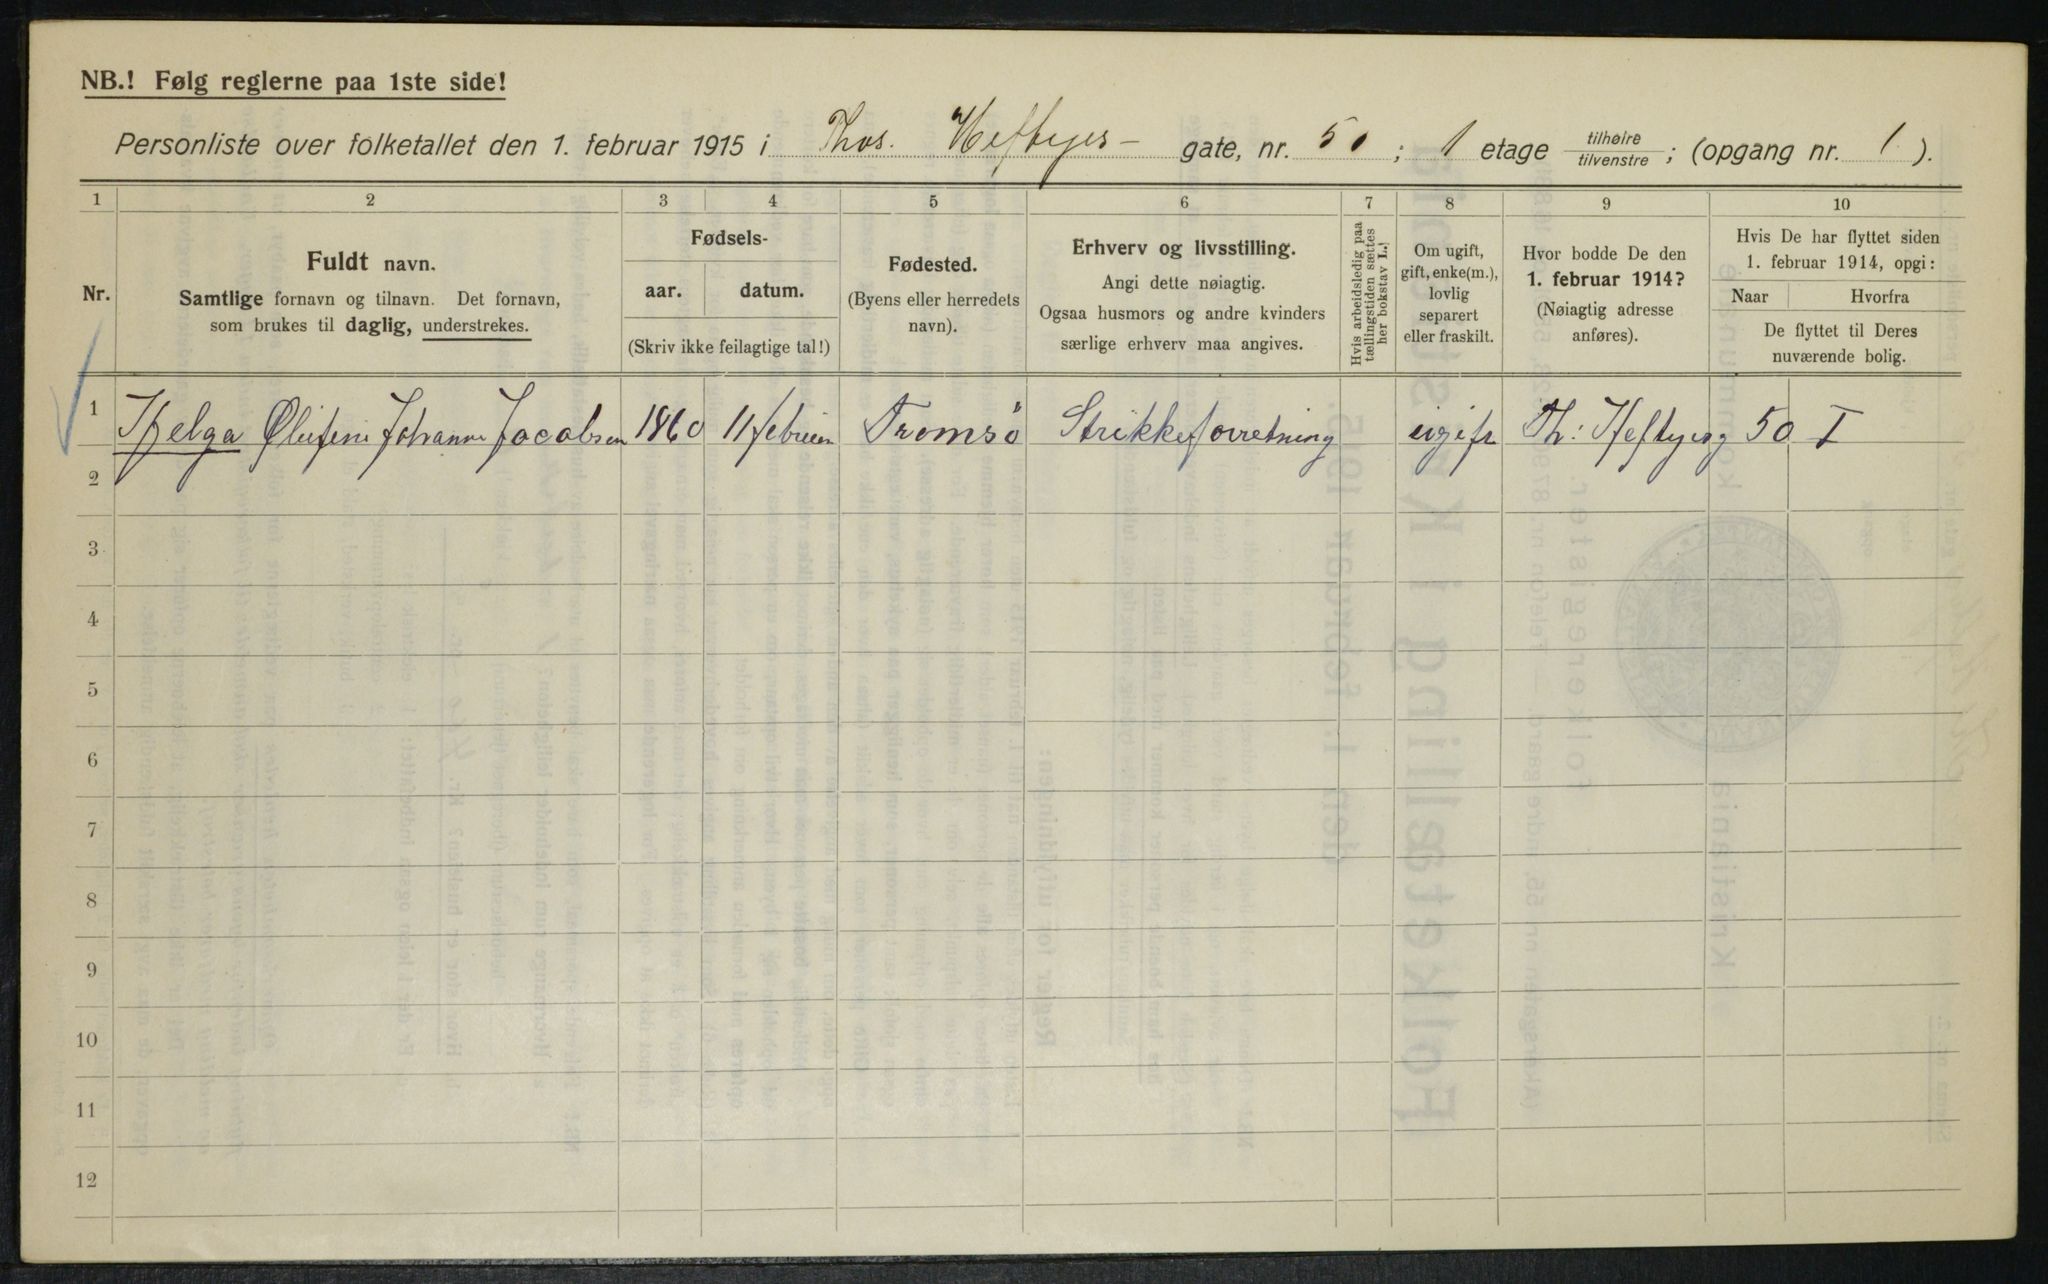 NB.! Følg reglerne paa 1ste side!
Personliste over folketallet den 1. februar 1915 i Thos. Heftyes - gate, nr. 50 ; 1 etage tilhøire / tilvenstre ; (opgang nr. 1 ).
1 2 3 4 5 6 7 8 9 10
Nr.
Fuldt navn.
Samtlige fornavn og tilnavn. Det fornavn,
som brukes til daglig, understrekes.
Fødsels-
aar. datum.
(Skriv ikke feilagtige tal!)
Fødested.
(Byens eller herredets
navn).
Erhverv og livsstilling.
Angi dette nøiagtig.
Ogsaa husmors og andre kvinders
særlige erhverv maa angives.
Hvis arbeidsledig paa
tællingstiden sættes
her bokstav L.!
Om ugift,
gift, enke(m.),
lovlig
separert
eller fraskilt.
Hvor bodde De den
1. februar 1914?
(Nøiagtig adresse
anføres).
Hvis De har flyttet siden
1. februar 1914, opgi:
Naar Hvorfra
De flyttet til Deres
nuværende bolig.
1 Helga Johanne Jacobsen 1860 11 Tromsø Strikkeforretning ugift Th: Heftyesg 50 I
2
3
4
5
6
7
8
9
10
11
12